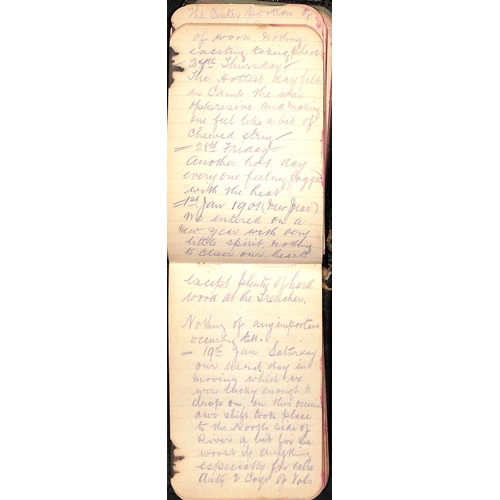 The Cinder portion of
of work. Nothing
exciting taking place
27th Thursday
The Hottest day felt
in Camp the was
oppresive and making
one feel like a bit of
Chewed string
28th Friday
Another hot day
every one feeling
with the heat
1st Jan 1901 (New Year)
We entered on a
New year with very
little spirit, nothing
to cheer our hearts
except plenty of hard
work at the Trenches.
Nothing of any importance
occuring till.
19th Jan Saturday
our usual day in
moving which we
were lucky enough to
drop on, on this occasion
our shift took place
to the North side of
River a bit for the
worst if anything
especially for extra
duty 2 Coys of Vols